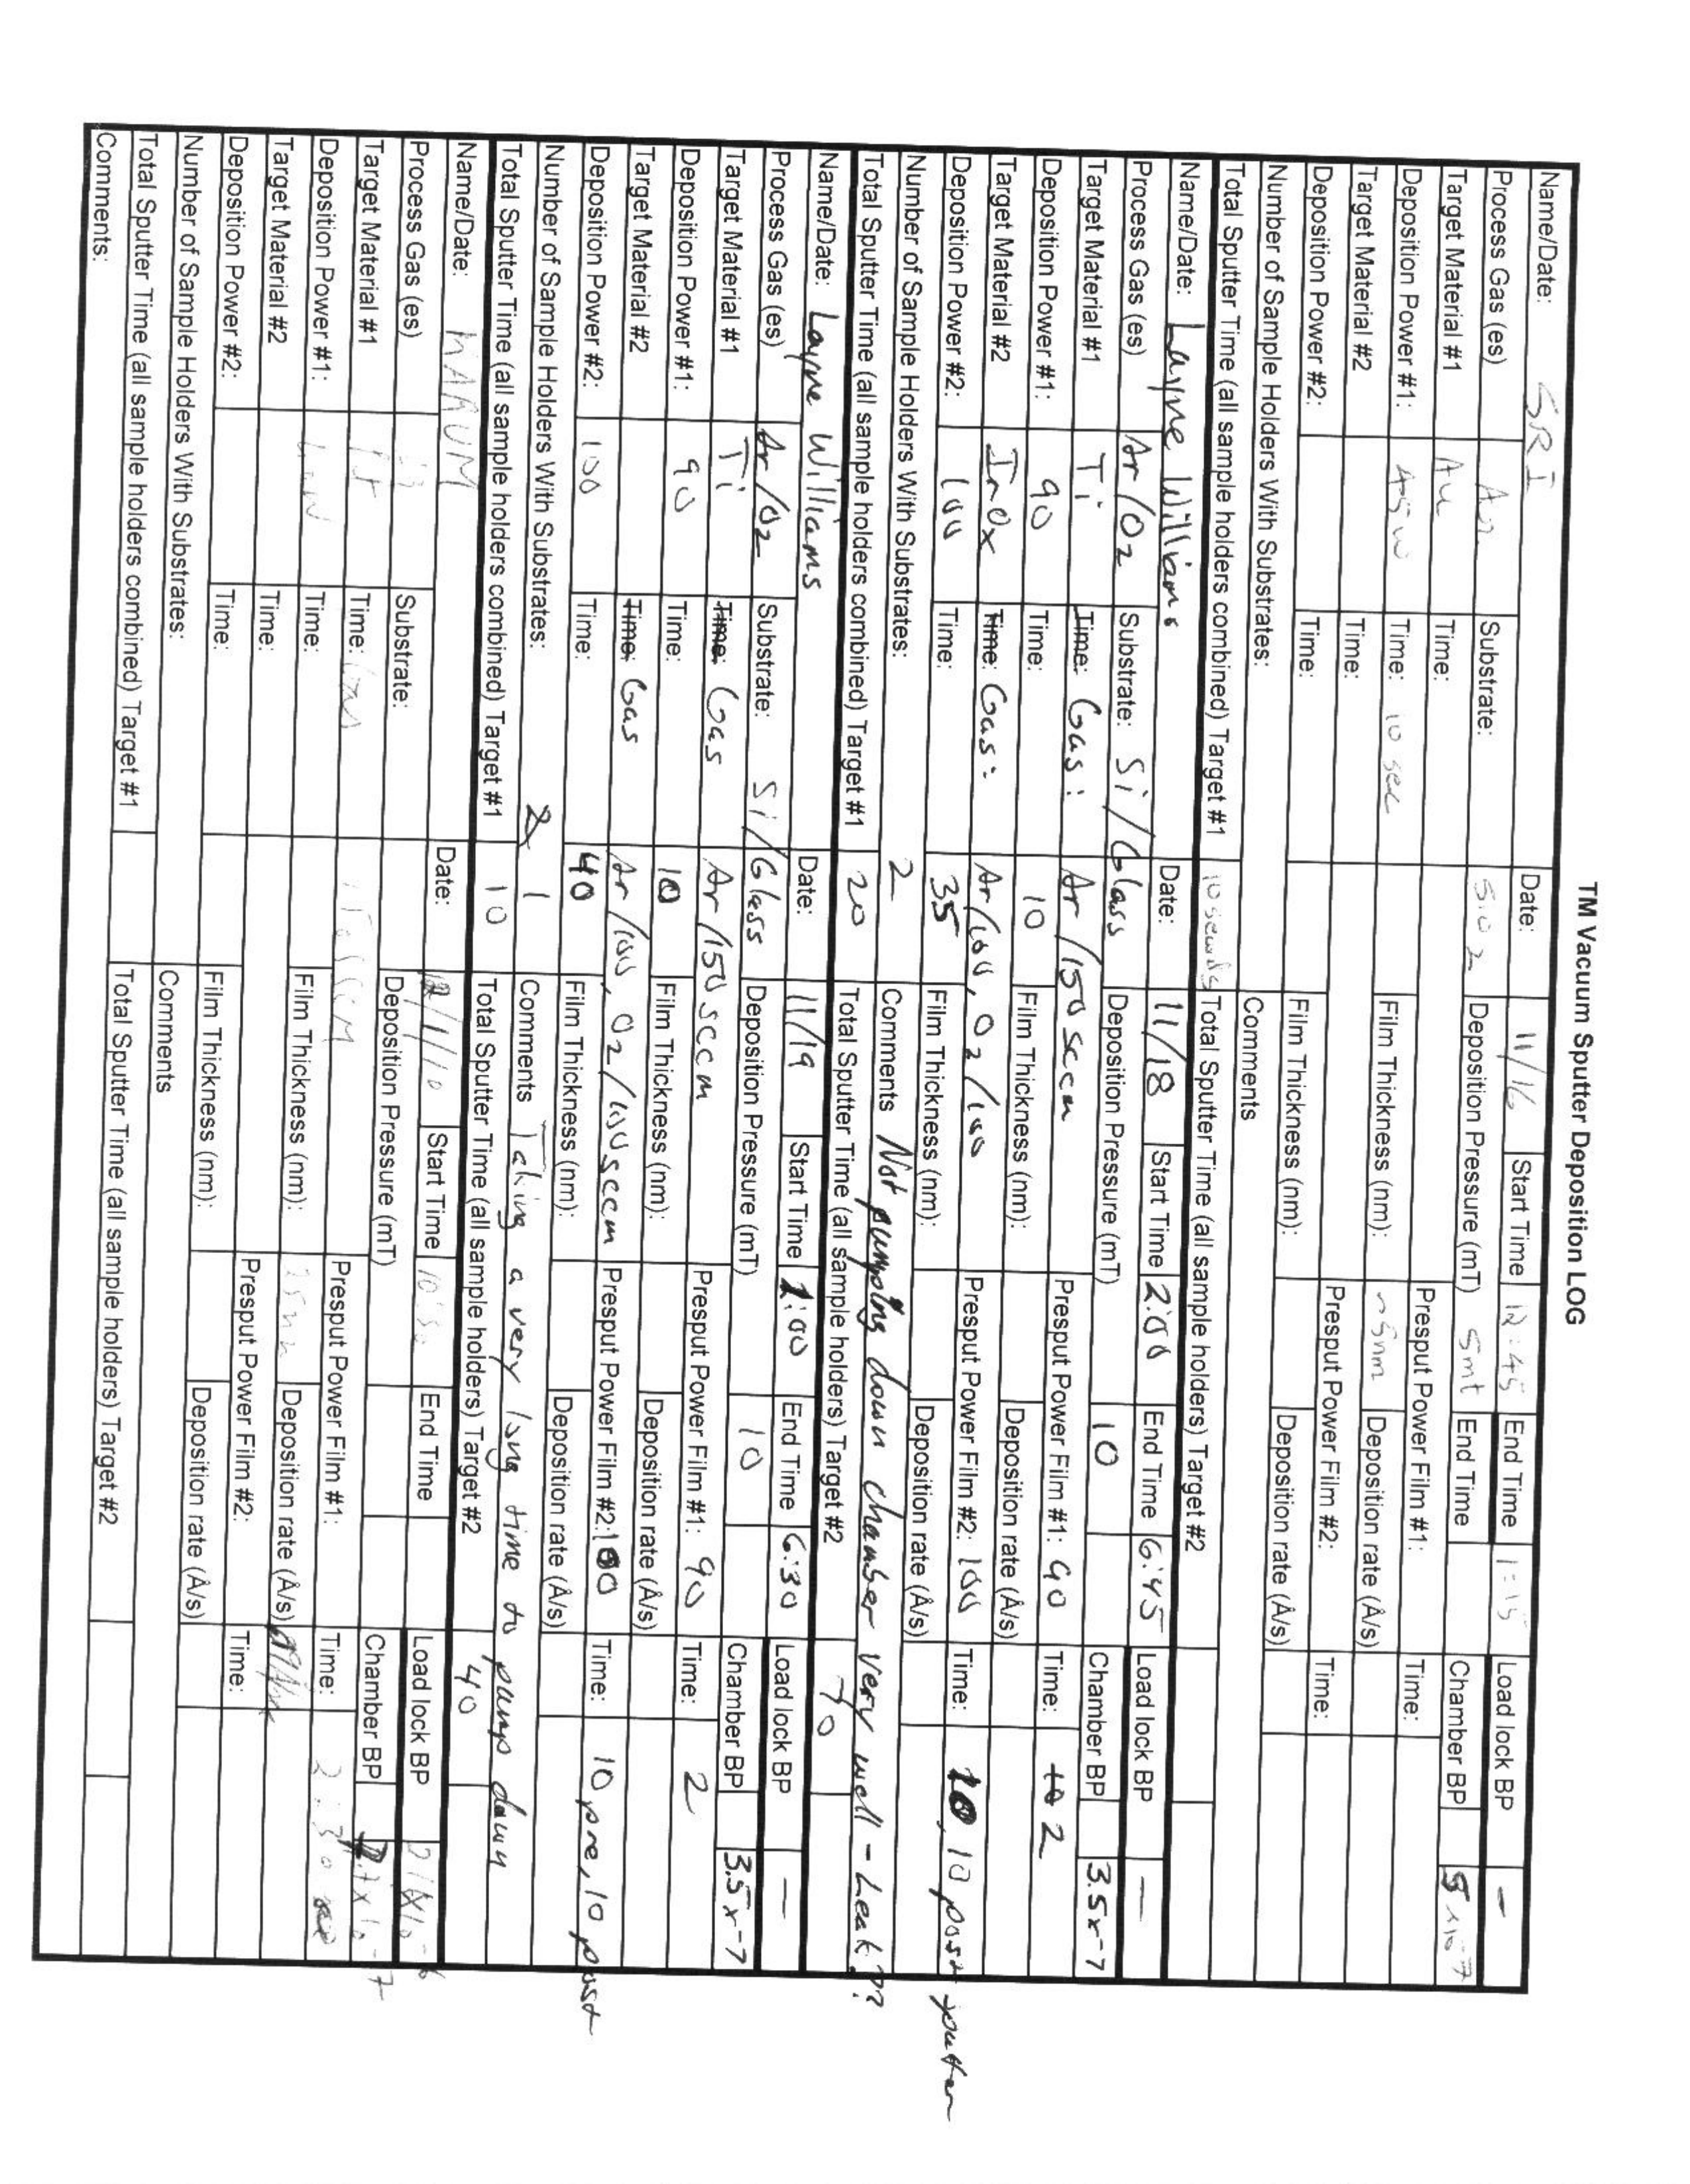 TM Vacuum Sputter Deposition LOG
Name/Date: SRI Date: 11/16 Start Time 12:45 End Time 1:15 Load lock BP —
Process Gas (es) Ar Substrate: SiO2 Deposition Pressure (mT) 5mt End Time Chamber BP 5x10-7
Target Material #1 Au Time: Presput Power Film #1: Time:
Deposition Power #1: 45W Time: 10 sec Film Thickness (nm): ~5nm Deposition rate (Å/s)
Target Material #2 Time: Presput Power Film #2: Time:
Deposition Power #2: Time: Film Thickness (nm): Deposition rate (Å/s)
Number of Sample Holders With Substrates: Comments
Total Sputter Time (all sample holders combined) Target #1 10 seconds Total Sputter Time (all sample holders) Target #2
Name/Date: Layne Williams Date: 11/18 Start Time 2:00 End Time 6:45 Load lock BP —
Process Gas (es) Ar/O2 Substrate: Si/Glass Deposition Pressure (mT) 10 Chamber BP 3.5x-7
Target Material #1 Ti Time: Gas: Ar/150 sccm Presput Power Film #1: 90 Time: 10 2
Deposition Power #1: 90 Time: 10 Film Thickness (nm): Deposition rate (Å/s)
Target Material #2 InOx Time: Gas: Ar/100, O2/100 Presput Power Film #2: 100 Time: 10, 10 post sputter
Deposition Power #2: 100 Time: 35 Film Thickness (nm): Deposition rate (Å/s)
Number of Sample Holders With Substrates: 2 Comments Not pumping down chamber very well - Leak??
Total Sputter Time (all sample holders combined) Target #1 20 Total Sputter Time (all sample holders) Target #2 70
Name/Date: Layne Williams Date: 11/19 Start Time 1:00 End Time 6:30 Load lock BP —
Process Gas (es) Ar/O2 Substrate: Si/Glass Deposition Pressure (mT) 10 Chamber BP 3.5x-7
Target Material #1 Ti Time: Gas Ar/150 sccm Presput Power Film #1: 90 Time: 2
Deposition Power #1: 90 Time: 10 Film Thickness (nm): Deposition rate (Å/s)
Target Material #2 Time: Gas Ar/100, O2/100 sccm Presput Power Film #2: 100 Time: 10 pre, 10 post
Deposition Power #2: 100 Time: 40 Film Thickness (nm): Deposition rate (Å/s)
Number of Sample Holders With Substrates: 2 1 Comments Taking a very long time to pump down
Total Sputter Time (all sample holders combined) Target #1 10 Total Sputter Time (all sample holders) Target #2 40
Name/Date: Date: Start Time End Time Load lock BP
Process Gas (es) Substrate: Deposition Pressure (mT) Chamber BP
Target Material #1 Pt Time: Presput Power Film #1: Time:
Deposition Power #1: Time: Film Thickness (nm): Deposition rate (Å/s)
Target Material #2 Time: Presput Power Film #2: Time:
Deposition Power #2: Time: Film Thickness (nm): Deposition rate (Å/s)
Number of Sample Holders With Substrates: Comments
Total Sputter Time (all sample holders combined) Target #1 Total Sputter Time (all sample holders) Target #2
Comments: